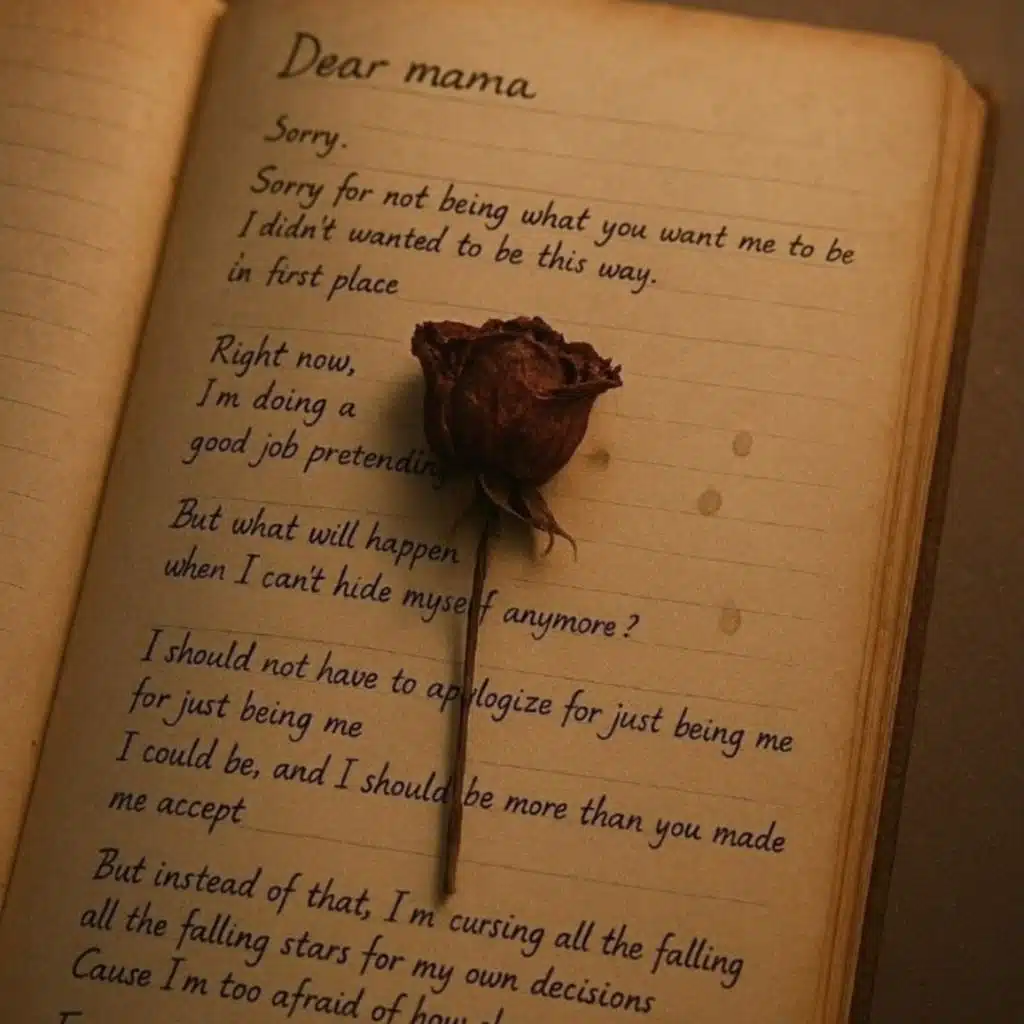 Dear mama
Sorry.
Sorry for not being what you want me to be
I didn't wanted to be this way.
in first place
Right now,
I'm doing a
good job pretending
But what will happen
when I can't hide myself anymore?
I should not have to apologize for just being me
for just being me
I could be, and I should be more than you made
me accept
But instead of that, I'm cursing all the falling
all the falling stars for my own decisions
Cause I'm too afraid of how